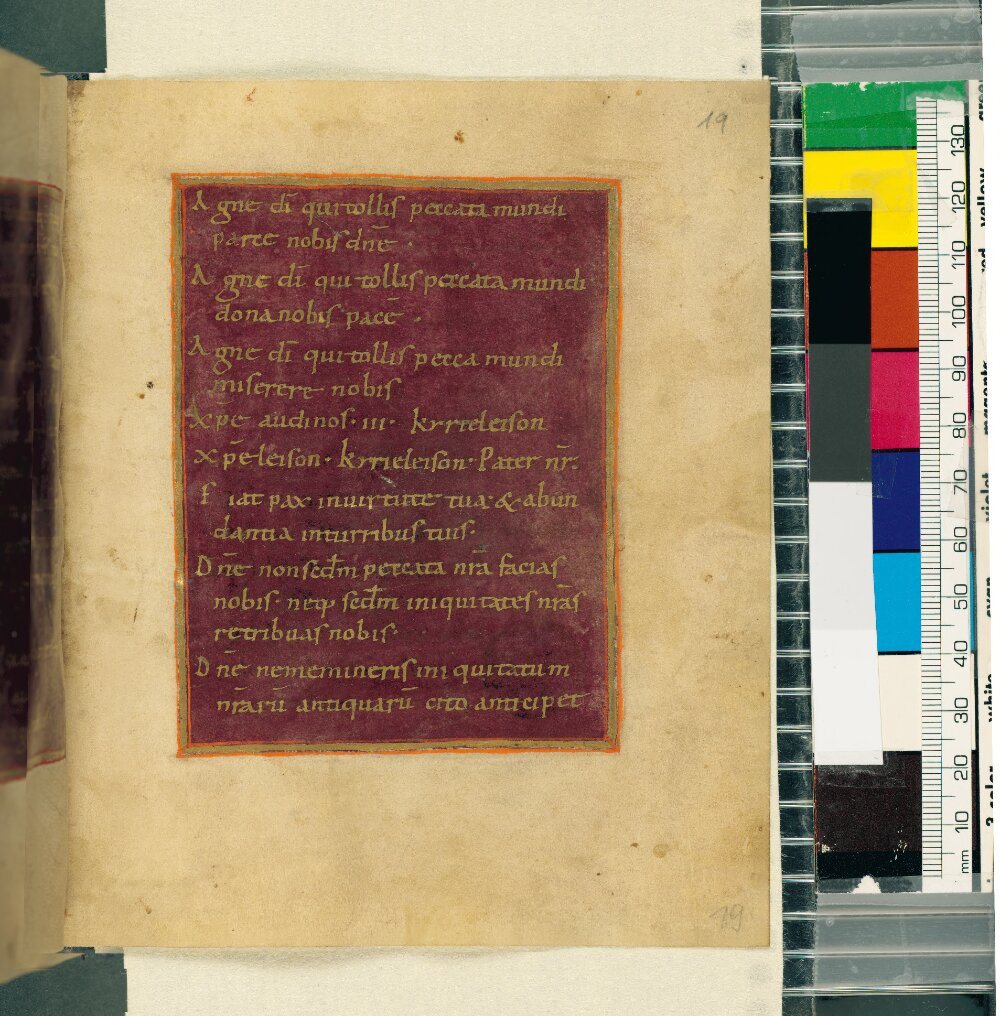 19
Agne dī qui tollis peccata mundi
parce nobis dn̄e ·
Agne dī qui tollis peccata mundi
dona nobis pacē ·
Agne dī qui tollis pecca mundi
miserere nobis
Xp̄e audi nos · III · kyrieleison
xp̄e leison · kyrieleison · Pater nr̄.
Fiat pax in uirtute tua & abun
dantia in turribus tuis ·
Dn̄e non secdm̄ peccata nr̄a facias
nobis · neq; secdm̄ iniquitates nr̄as
retribuas nobis ·
Dn̄e ne memineris iniquitatum
nr̄arū antiquarū cito anticipet
19
130
120
110
100
90
80
70
60
50
40
30
20
10
mm
yellow
magenta
violet
cyan
white
3 color